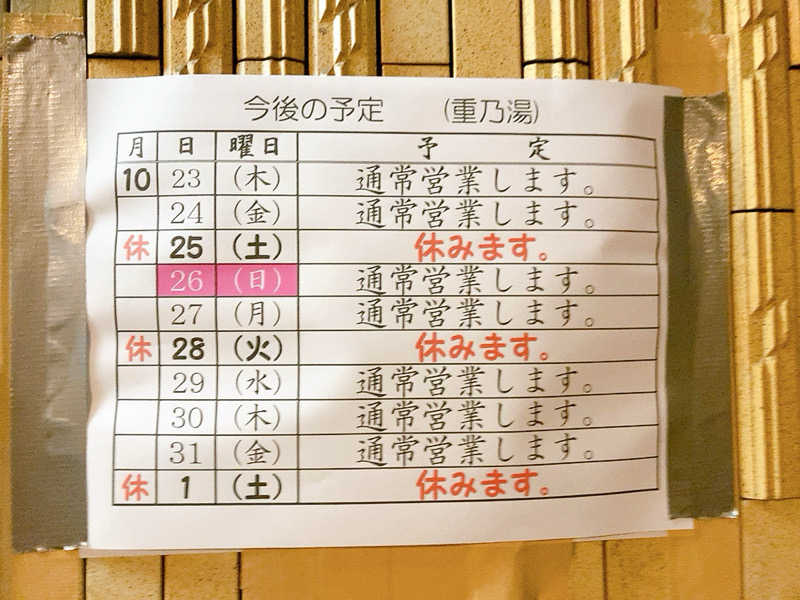 今後の予定 (重乃湯)
月 日 曜日 予定
10 23 (木) 通常営業します。
24 (金) 通常営業します。
休 25 (土) 休みます。
26 (日) 通常営業します。
27 (月) 通常営業します。
休 28 (火) 休みます。
29 (水) 通常営業します。
30 (木) 通常営業します。
31 (金) 通常営業します。
休 1 (土) 休みます。